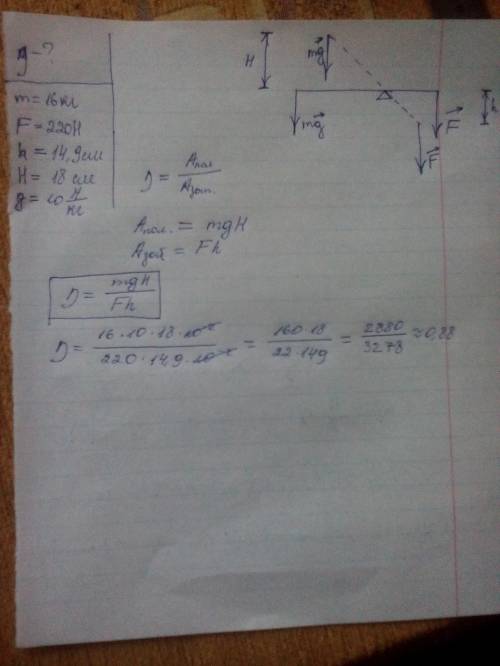 η - ?
m = 16 кг
F = 220 Н
h = 14,9 см
H = 18 см
g = 10 Н/кг
H
mg
mg
F
F
h
η = Aпол. / Aзат.
Aпол. = mgH
Aзат = Fh
η = mgH / Fh
η = 16 · 10 · 18 · 10⁻² / 220 · 14,9 · 10⁻² = 160 · 18 / 22 · 149 = 2880 / 3278 ≈ 0,88